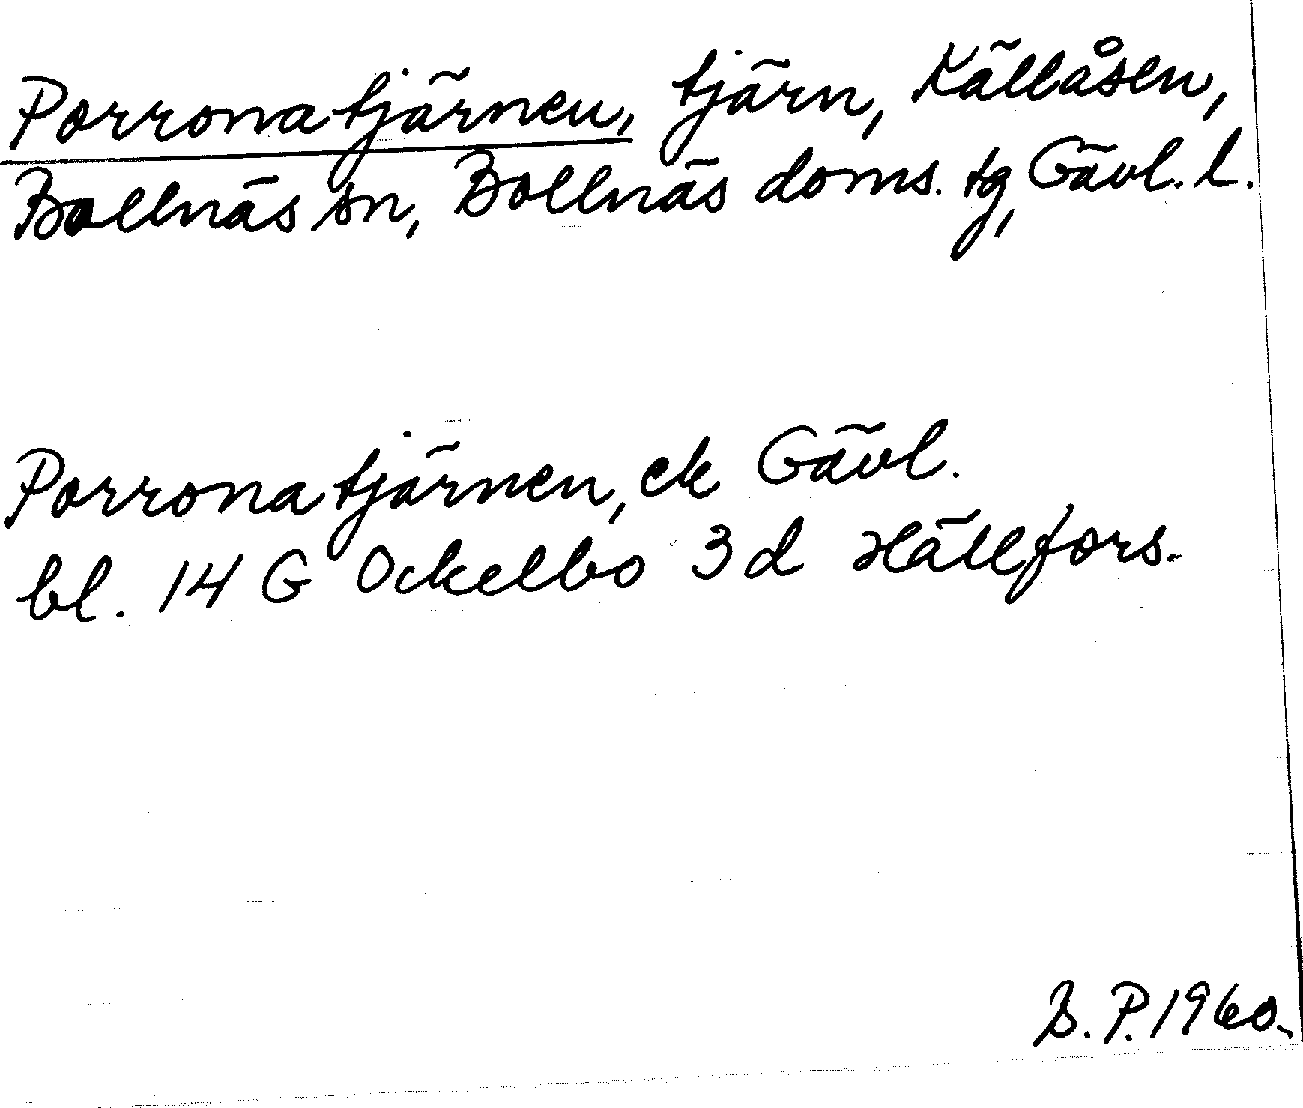 Porronatjärnen, tjärn, Källåsen,
Bollnäs sn, Bollnäs doms. tg, Gävl. l.
Porronatjärnen, ek Gävl.
bl. 14 G Ockelbo 3 d Hällfors.
B. P. 1960.